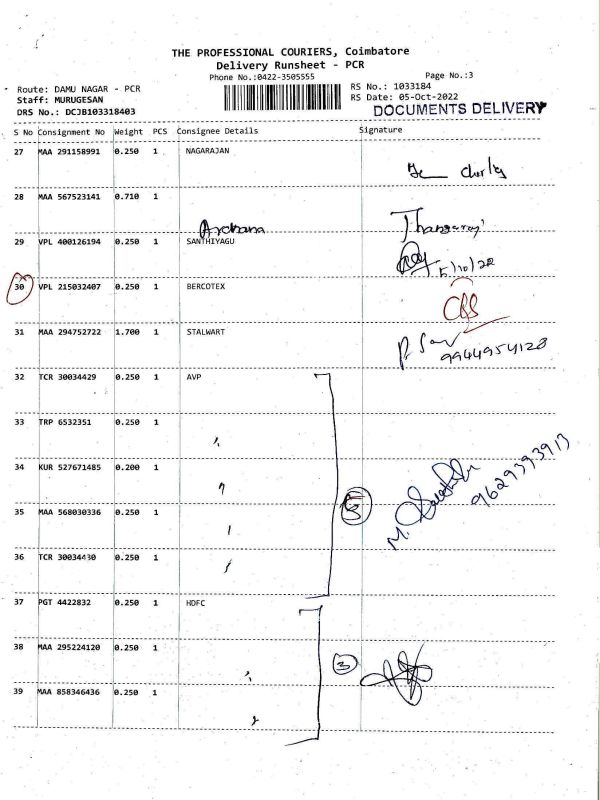 THE PROFESSIONAL COURIERS, Coimbatore
Delivery Runsheet - PCR
Phone No.:0422-3505555
Page No.:3
Route: DAMU NAGAR - PCR
Staff: MURUGESAN
DRS No.: DCJB103318403
RS No.: 1033184
RS Date: 05-Oct-2022
DOCUMENTS DELIVERY
S No Consignment No Weight PCS Consignee Details Signature
27 MAA 291158991 0.250 1 NAGARAJAN
28 MAA 567523141 0.710 1
Archana Thangaraj
29 VPL 400126194 0.250 1 SANTHIYAGU
5/10/22
30 VPL 215032407 0.250 1 BERCOTEX
31 MAA 294752722 1.700 1 STALWART
9944954128
32 TCR 30034429 0.250 1 AVP
33 TRP 6532351 0.250 1
34 KUR 527671485 0.200 1
9629393913
35 MAA 568030336 0.250 1
5
36 TCR 30034430 0.250 1
37 PGT 4422832 0.250 1 HDFC
38 MAA 295224120 0.250 1
3
39 MAA 858346436 0.250 1